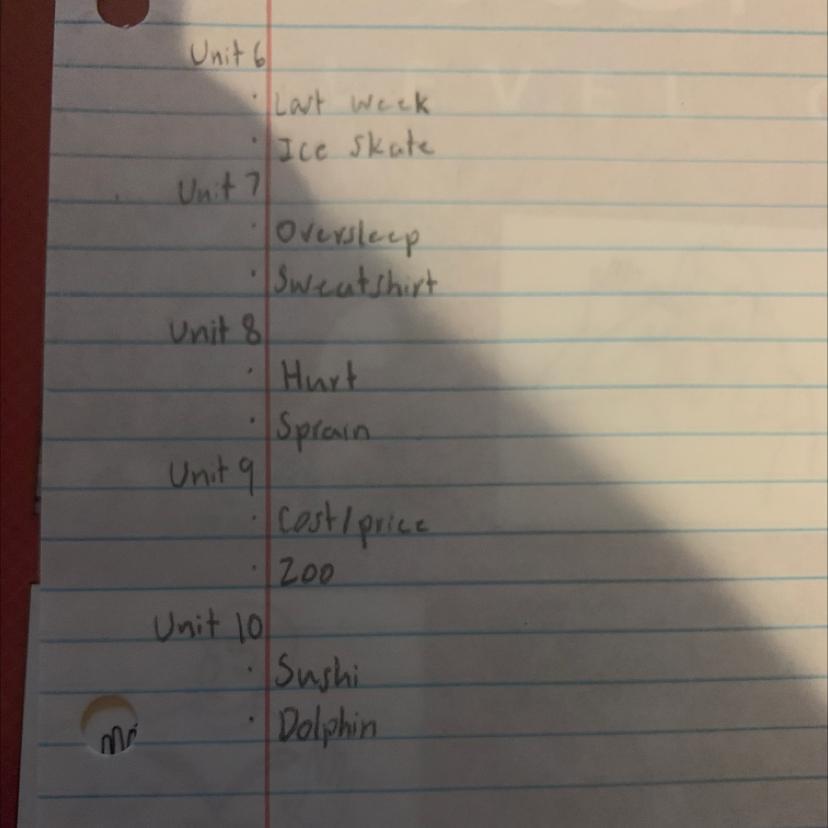 Unit 6
· Last week
· Ice skate
Unit 7
· Oversleep
· Sweatshirt
Unit 8
· Hurt
· Sprain
Unit 9
· Cost/price
· Zoo
Unit 10
· Sushi
· Dolphin